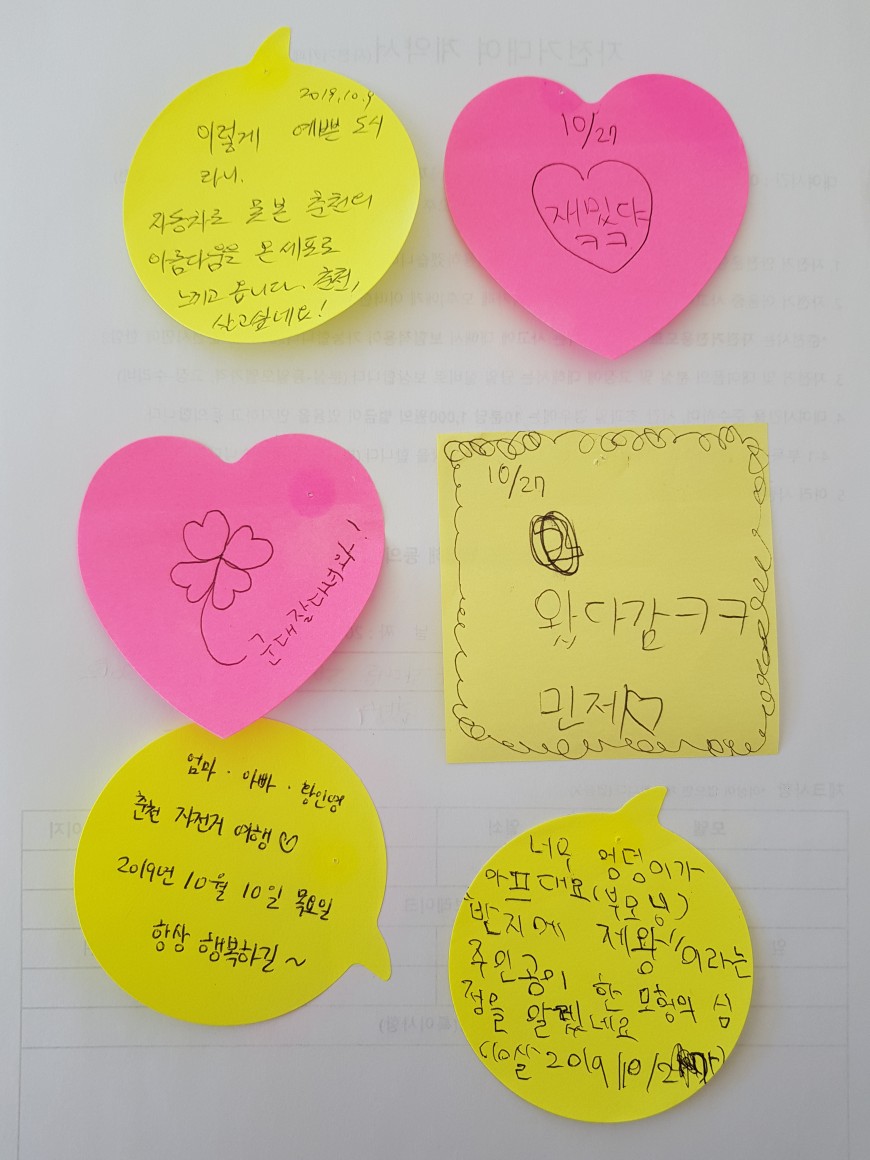 2019.10.9
이렇게 예쁜 도시
라니.
자동차로 못 본 춘천의
아름다움을 온 세포로
느끼고 옵니다. 춘천,
살고싶네요!
10/27
재밌다
ㅋㅋ
군대잘다녀와!
10/27
왔다감ㅋㅋ
민제♡
엄마 · 아빠 · 황인영
춘천 자전거 여행♡
2019년 10월 10일 목요일
항상 행복하길~
너무 엉덩이가
아프대요(부모님)
반지에 제왕"이라는
주인공이 한 모형의 심
정을 알겠네요
(10살 2019 10/2